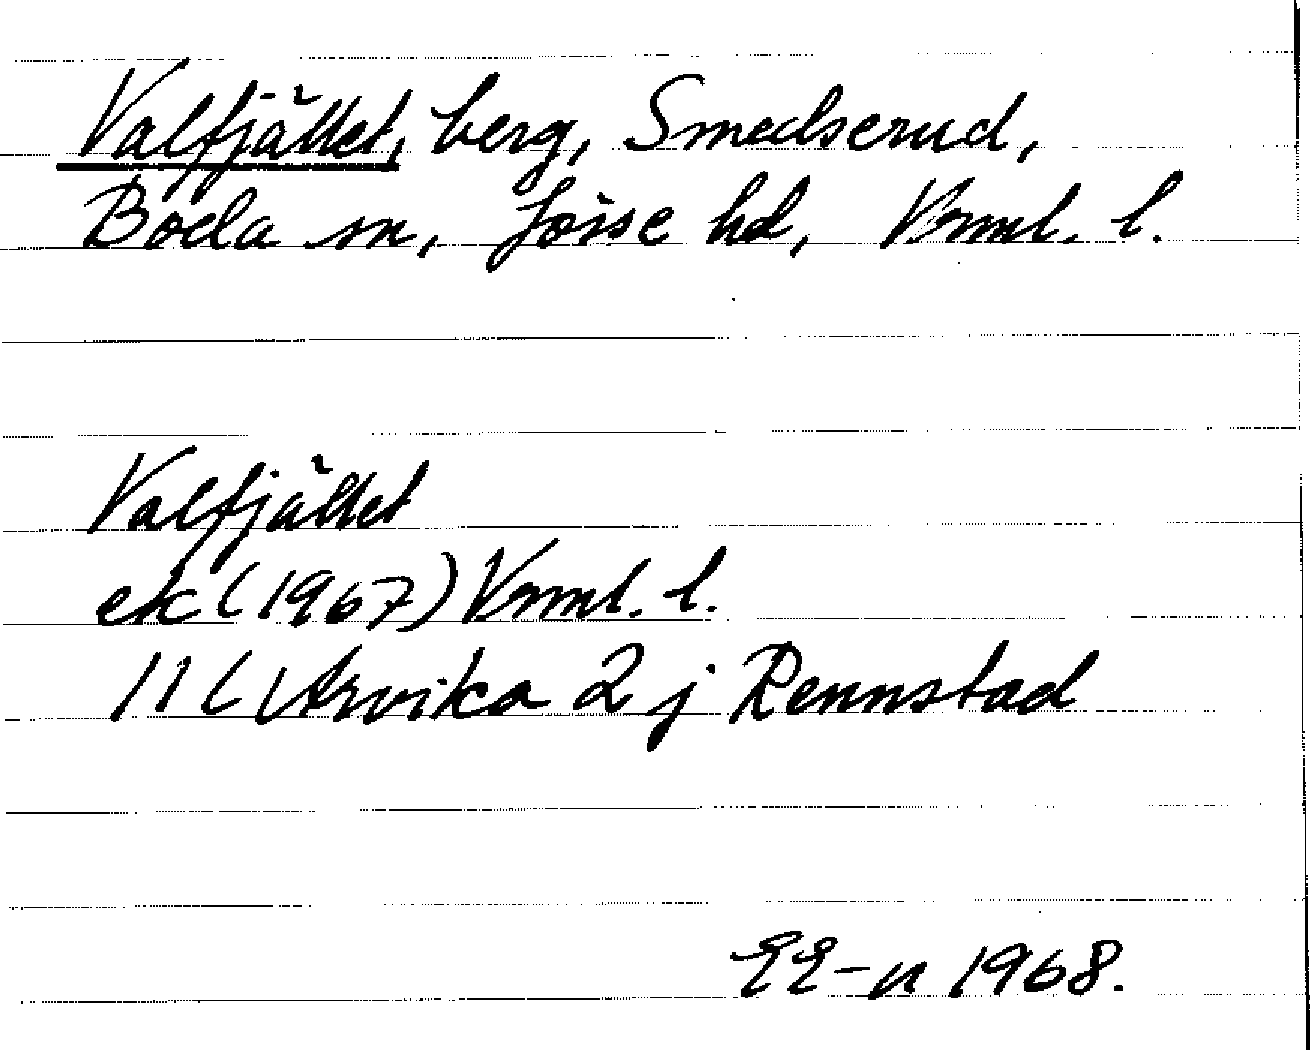 Valfjället, berg, Smedserud,
Boda sn, Jösse hd, Vrml. l.
Valfjället
ek (1967) Vrml. l.
11 C Arvika 2 j Rennstad
EE-n 1968.